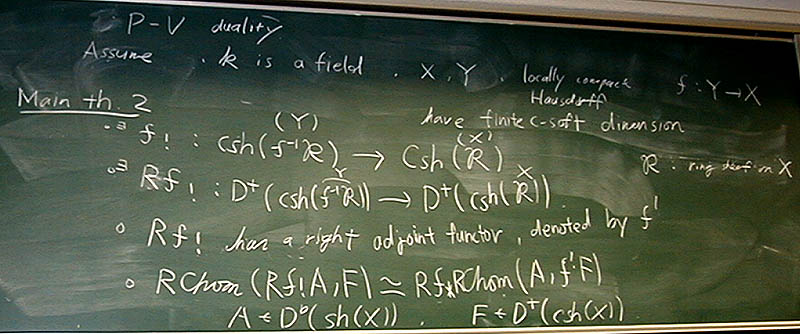 P-V duality
Assume . k is a field . X, Y . locally compact Hausdorff f : Y → X
Main th. 2 have finite c-soft dimension
∘ ∃ f! : Csh(f⁻¹R) (Y) → Csh(R) (X) R : ring sheaf on X
∘ ∃ Rf! : D⁺(csh(f⁻¹R)) Y → D⁺(csh(R)) X .
∘ Rf! has a right adjoint functor, denoted by f!
∘ RChom(Rf!A, F) ≃ Rf*RChom(A, f!F)
A ∈ Dᵇ(sh(X)) . F ∈ D⁺(csh(X)) .